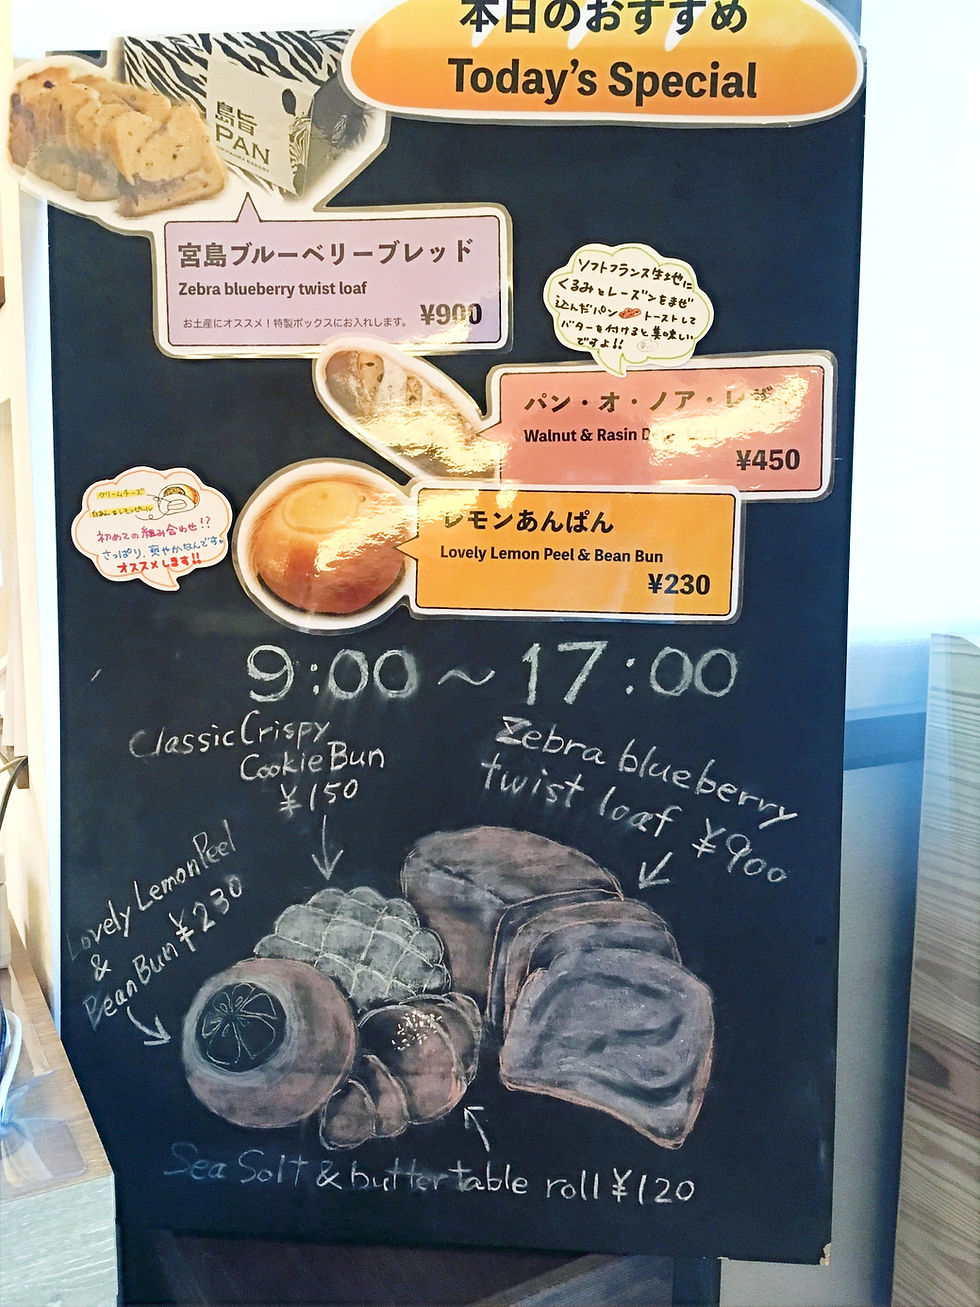 本日のおすすめ
Today's Special
島旨
PAN
宮島ブルーベリーブレッド
Zebra blueberry twist loaf
お土産にオススメ！特製ボックスにお入れします。
¥900
ソフトフランス生地に
くるみとレーズンをまぜ
込んだパン トーストして
バターを付けると美味しい
ですよ!!
パン・オ・ノア・レザン
Walnut & Rasin
¥450
クリームチーズ
白あん&レモンピール
初めての組み合わせ!?
さっぱり、爽やかなんです。
オススメします!!
レモンあんぱん
Lovely Lemon Peel & Bean Bun
¥230
9:00～17:00
Classic Crispy
Cookie Bun
¥150
Zebra blueberry
twist loaf ¥900
Lovely Lemon Peel
&
Bean Bun ¥230
Sea Solt & butter table roll ¥120